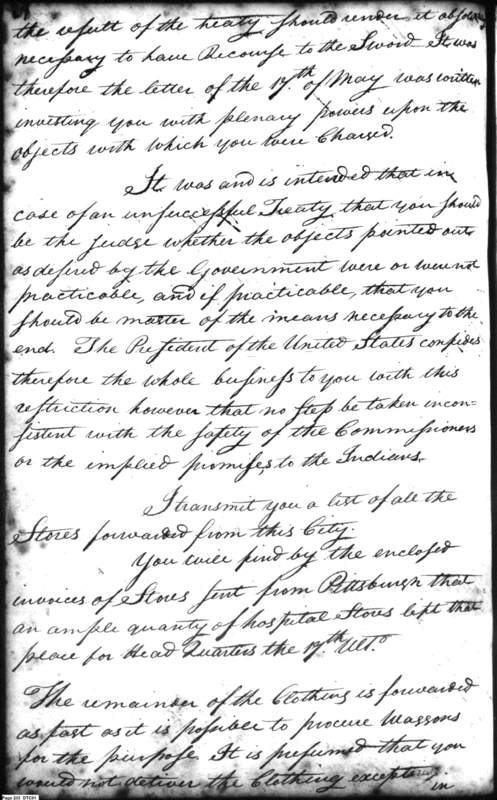 the result of the treaty should render it absolutely
necessary to have Recourse to the Sword It was
therefore the letter of the 17th of May was written
investing you with plenary powers upon the
objects with which you were Charged.
It was and is intended that in
case of an unsuccessful Treaty that you should
be the judge whether the objects pointed out
as desired by the Government were or were not
practicable, and if practicable, that you
should be master of the means necessary to the
end. The President of the United States confides
therefore the whole business to you with this
restriction however that no step be taken incon=
sistent with the safety of the Commissioners
or the implied promises to the Indians.
I transmit you a list of all the
Stores forwarded from this City.
You will find by the enclosed
invoices of Stores sent from Pittsburgh that
an ample quanty of hospital Stores left that
place for Head Quarters the 17th Ulto.
The remainder of the Clothing is forwarded
as fast as it is possible to procure Waggons
for the purpose. It is presumed that you
would not deliver the Clothing excepting
in
Page 233 DTC01